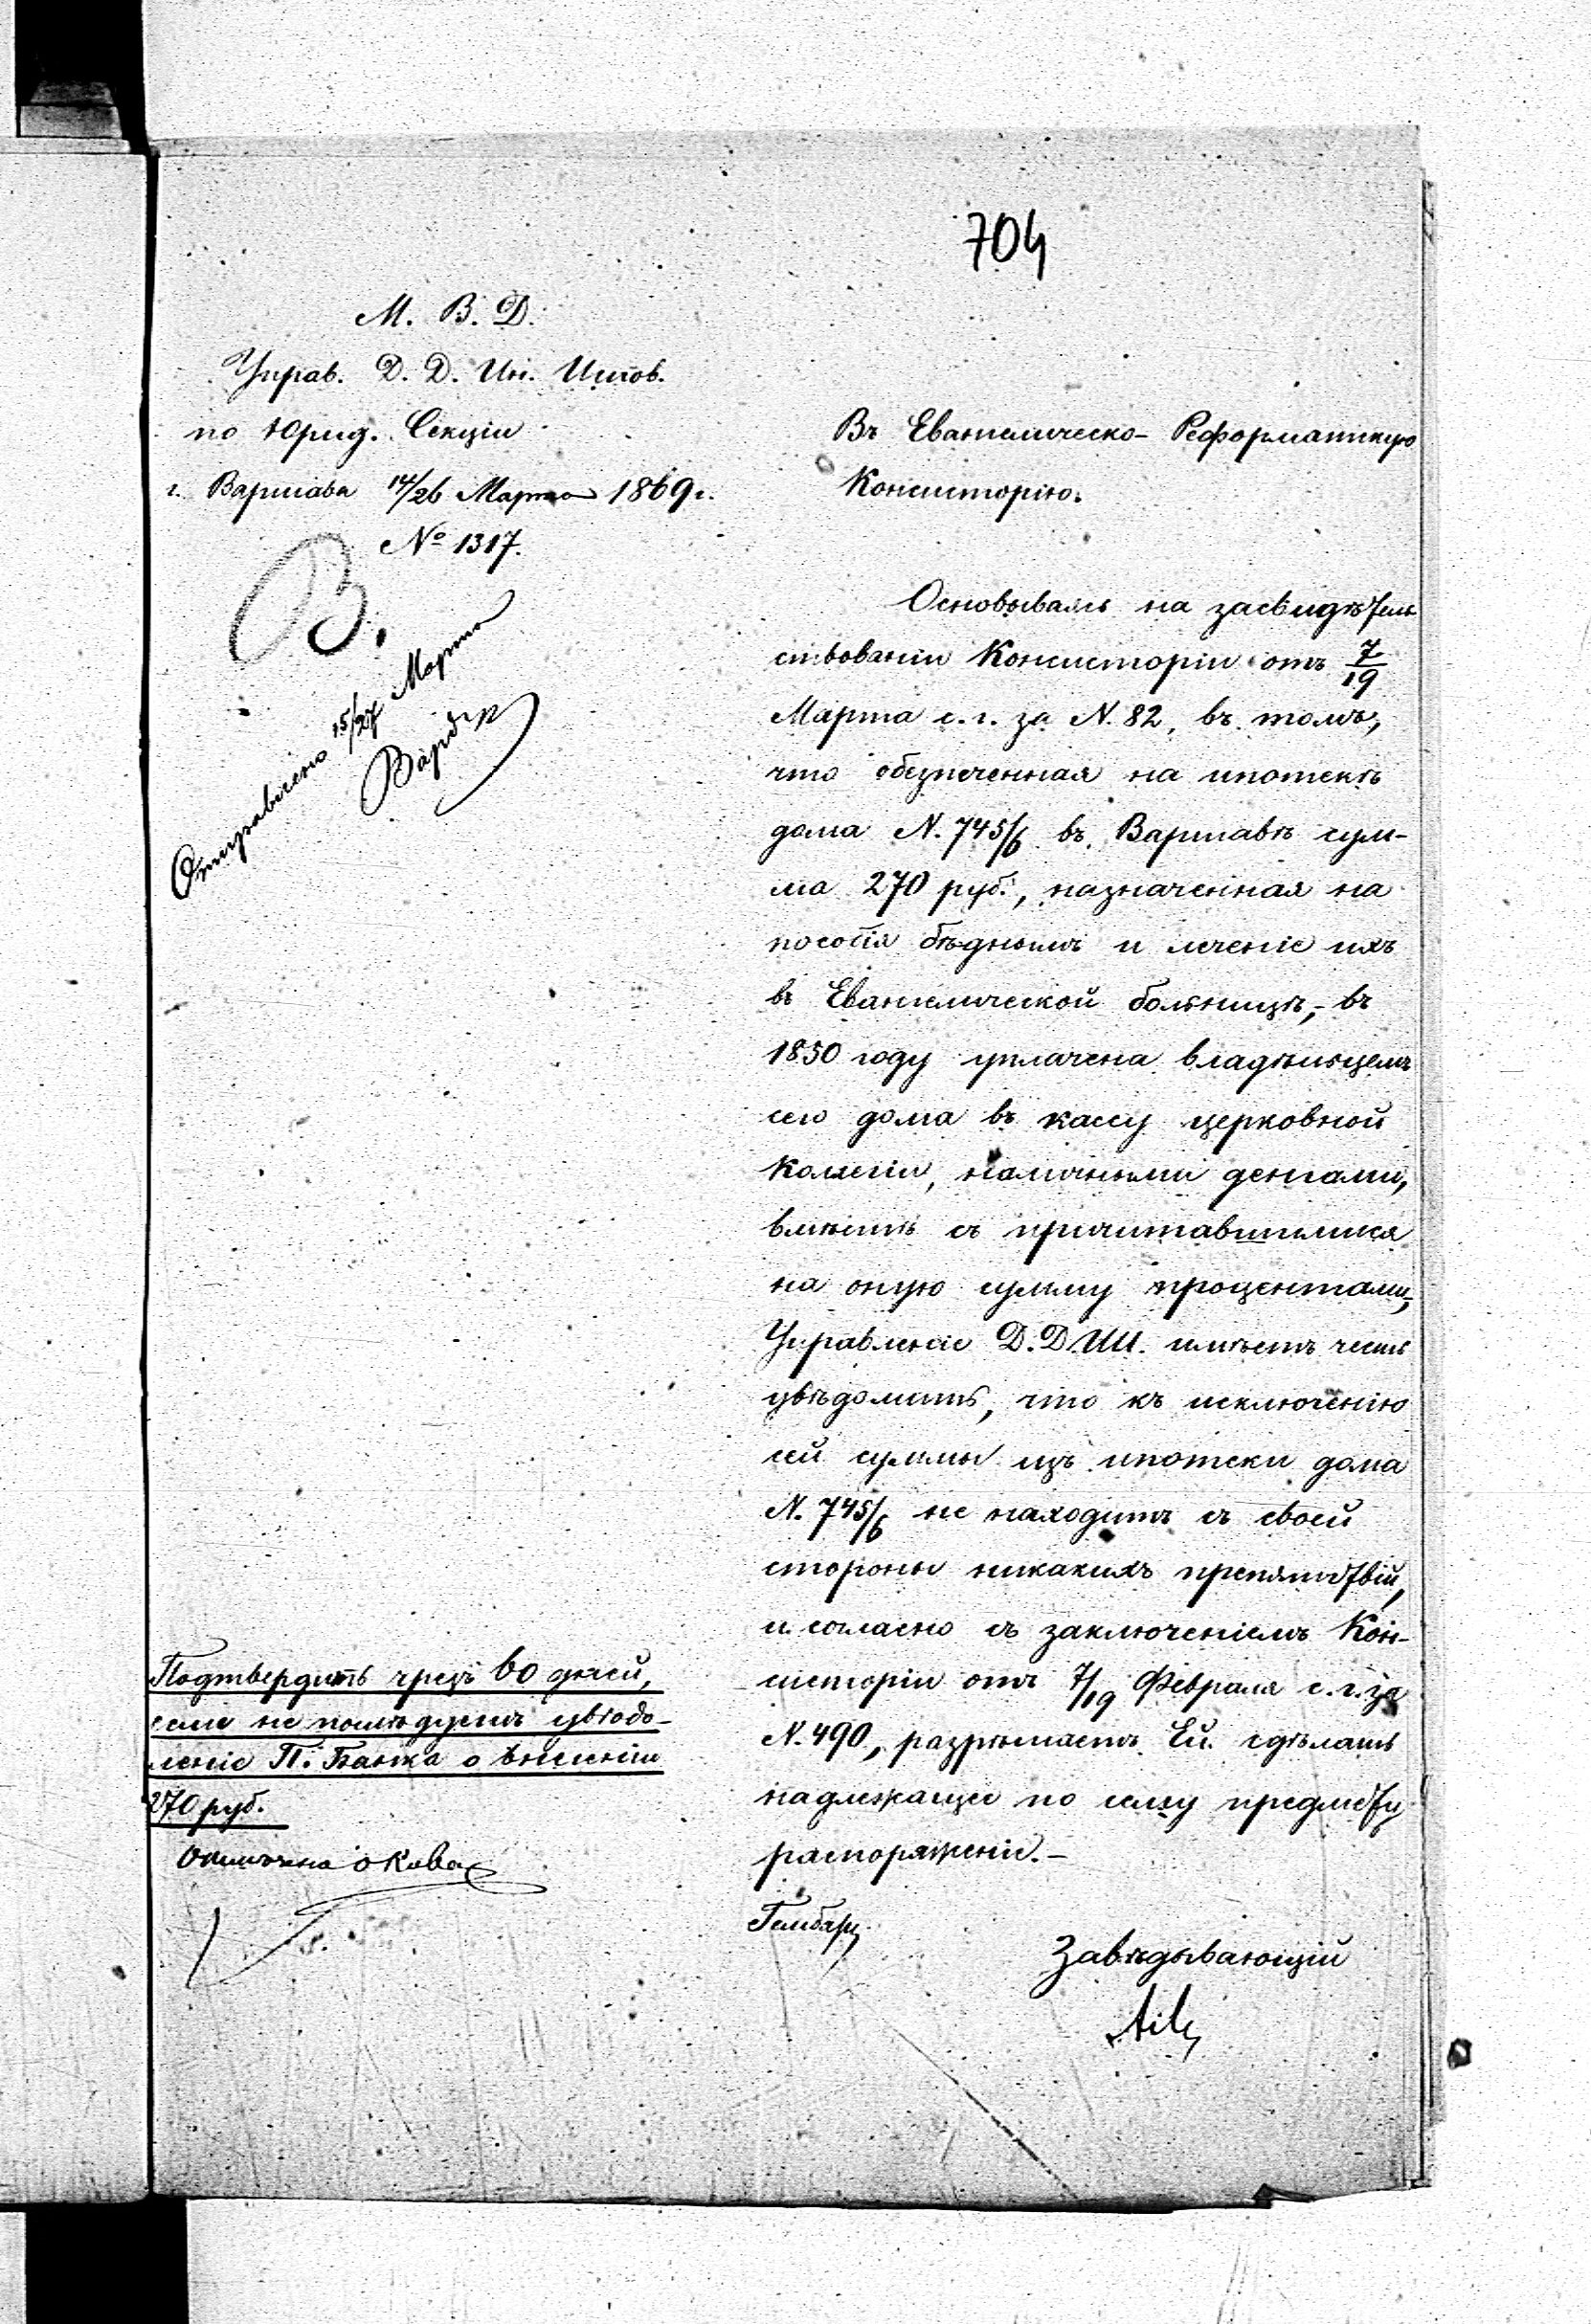 704
М. В. Д.
Управ. Д. Д. Ин. Испов.
по Юрид. Секціи
г. Варшава 14/26 Марта 1869 г.
№ 1317.
В.
Отправлено 15/27 Марта
Въ Евангелическо-Реформатскую
Консисторію.
Основываясь на засвидѣтель
ствованіи Консисторіи отъ 7/19
Марта с. г. за N. 82, въ томъ,
что обезпеченная на ипотекѣ
дома N. 745/6 въ Варшавѣ сум-
ма 270 руб., назначенная на
пособія бѣднымъ и леченіе ихъ
въ Евангелической больницѣ, - въ
1850 году уплачена владѣльцемъ
сего дома въ кассу церковной
Коллегіи, наличными деньгами,
вмѣстѣ съ причитавшимися
на оную сумму процентами,
Управленіе Д. Д. ИИ. имѣетъ честь
увѣдомить, что къ исключенію
сей суммы изъ ипотеки дома
N. 745/6 не находитъ съ своей
стороны никакихъ препятствій,
и согласно съ заключеніемъ Кон-
систоріи отъ 7/19 Февраля с. г. за
N. 490, разрѣшаетъ Ей сдѣлать
надлежащее по сему предмету
распоряженіе. -
Завѣдывающій
Подтвердить чрезъ 60 дней,
если не послѣдуетъ увѣдо-
мленіе П. Банка о внесеніи
270 руб.